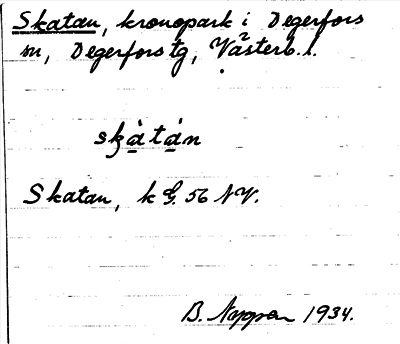 Skatan, kronopark i Degerfors
sn, Degerfors tg, Västerb. l.
skàtán
Skatan, k G. 56 NV.
B. 1934.